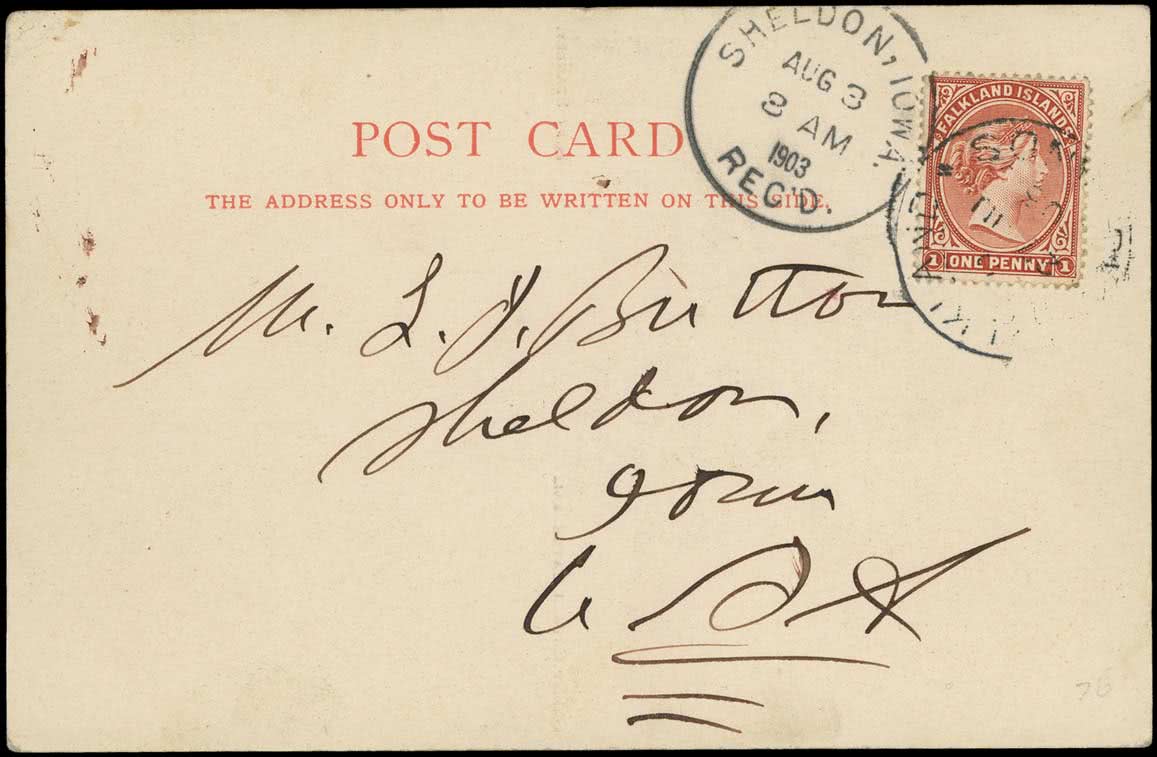 SHELDON, IOWA.
AUG 3
8 AM
1903
REC'D.
FALKLAND ISLANDS
1 ONE PENNY 1
POST CARD
THE ADDRESS ONLY TO BE WRITTEN ON THIS SIDE.
M. L. J. Button
Sheldon,
Iowa
U S A
76